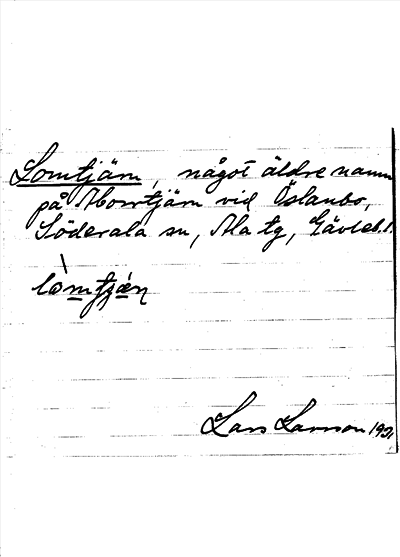 Lomtjärn, något äldre namn
på Aborrtjärn vid Östanbo,
Söderala sn, Ala tg, Gävleb. l.
lòmtjæ̀ṇ
Lars Larsson 1921